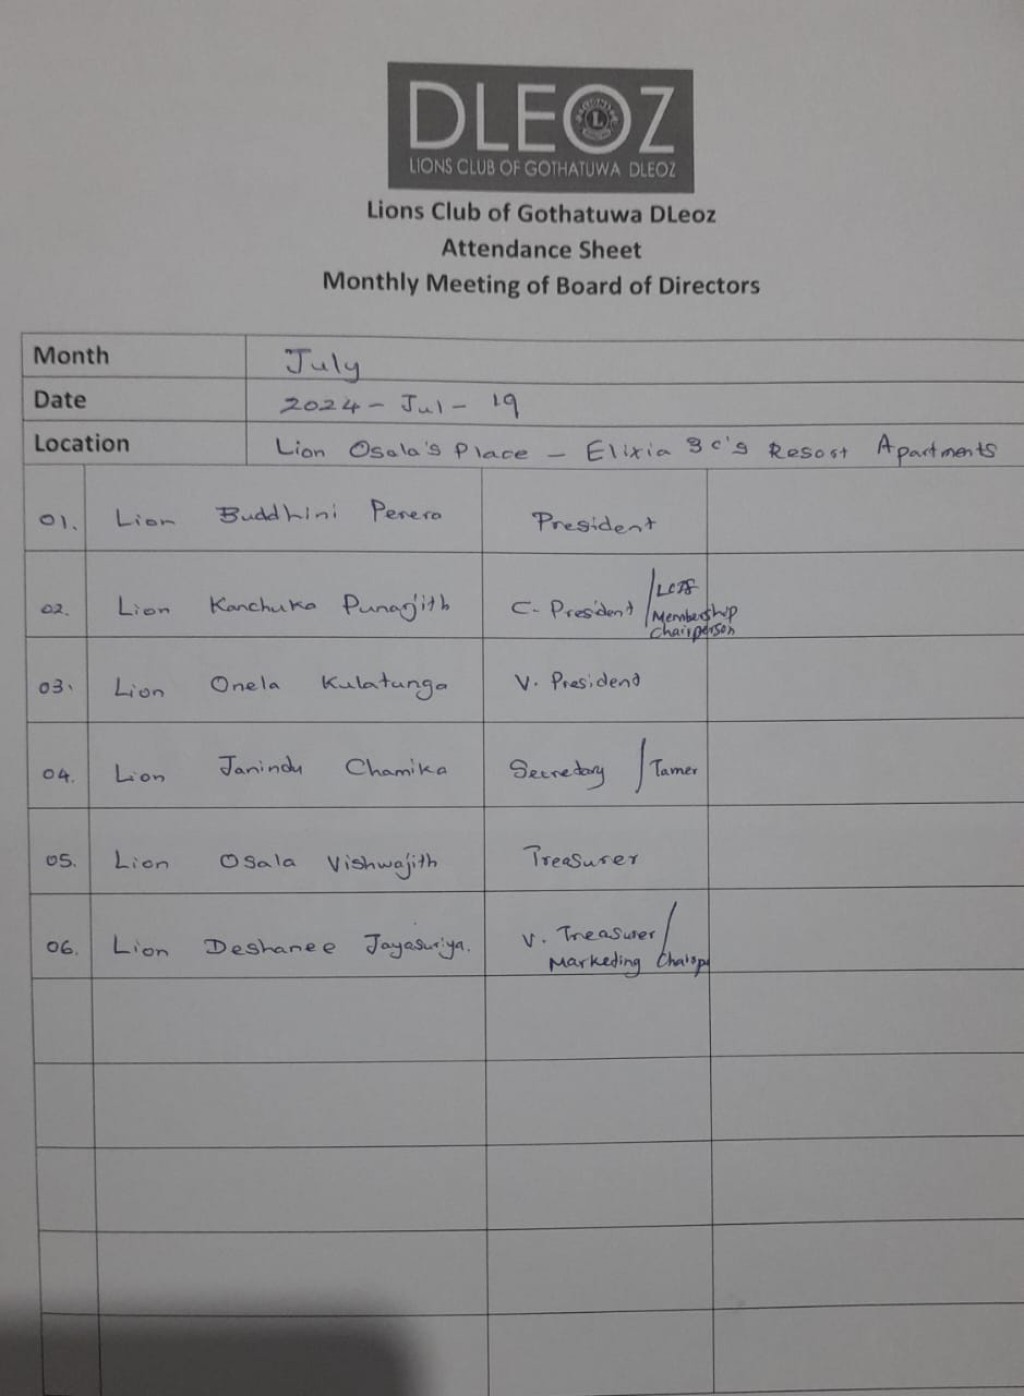 DLEOZ
LIONS CLUB OF GOTHATUWA DLEOZ
Lions Club of Gothatuwa DLeoz
Attendance Sheet
Monthly Meeting of Board of Directors
Month July
Date 2024 - Jul - 19
Location Lion Osala's Place - Elixia 3C's Resort Apartments
01. Lion Buddhini Perera President
02. Lion Kanchuka Punarjith C. President / LCIF
Membership
Chairperson
03. Lion Onela Kulatunga V. President
04. Lion Janindu Chamika Secretary / Tamer
05. Lion Osala Vishwajith Treasurer
06. Lion Deshanee Jayasuriya. V. Treasurer /
Marketing Chairp